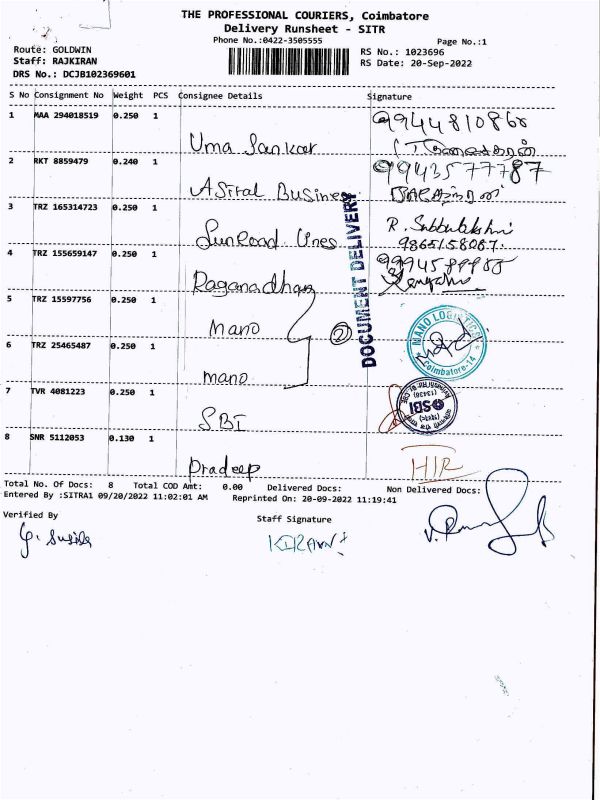 THE PROFESSIONAL COURIERS, Coimbatore
Delivery Runsheet - SITR
Phone No.:0422-3505555
Page No.:1
Route: GOLDWIN
RS No.: 1023696
Staff: RAJKIRAN
RS Date: 20-Sep-2022
DRS No.: DCJB102369601
S No Consignment No Weight PCS Consignee Details Signature
1 MAA 294018519 0.250 1 Uma Sankar
2 RKT 8859479 0.240 1 Astral Business 9943577787
3 TRZ 165314723 0.250 1 SunRoad Lines R. Subbulakshmi
9865158087.
4 TRZ 155659147 0.250 1 Raganadhan
5 TRZ 15597756 0.250 1 mano
6 TRZ 25465487 0.250 1 mano
2
DOCUMENT DELIVERY
MANO LOGISTICS
Coimbatore-14
7 TVR 4081223 0.250 1 SBI
SBI
(13436)
8 SNR 5112053 0.130 1 Pradeep
Total No. Of Docs: 8 Total COD Amt: 0.00 Delivered Docs: Non Delivered Docs:
Entered By :SITRA1 09/20/2022 11:02:01 AM Reprinted On: 20-09-2022 11:19:41
Verified By
Staff Signature
KIRAN